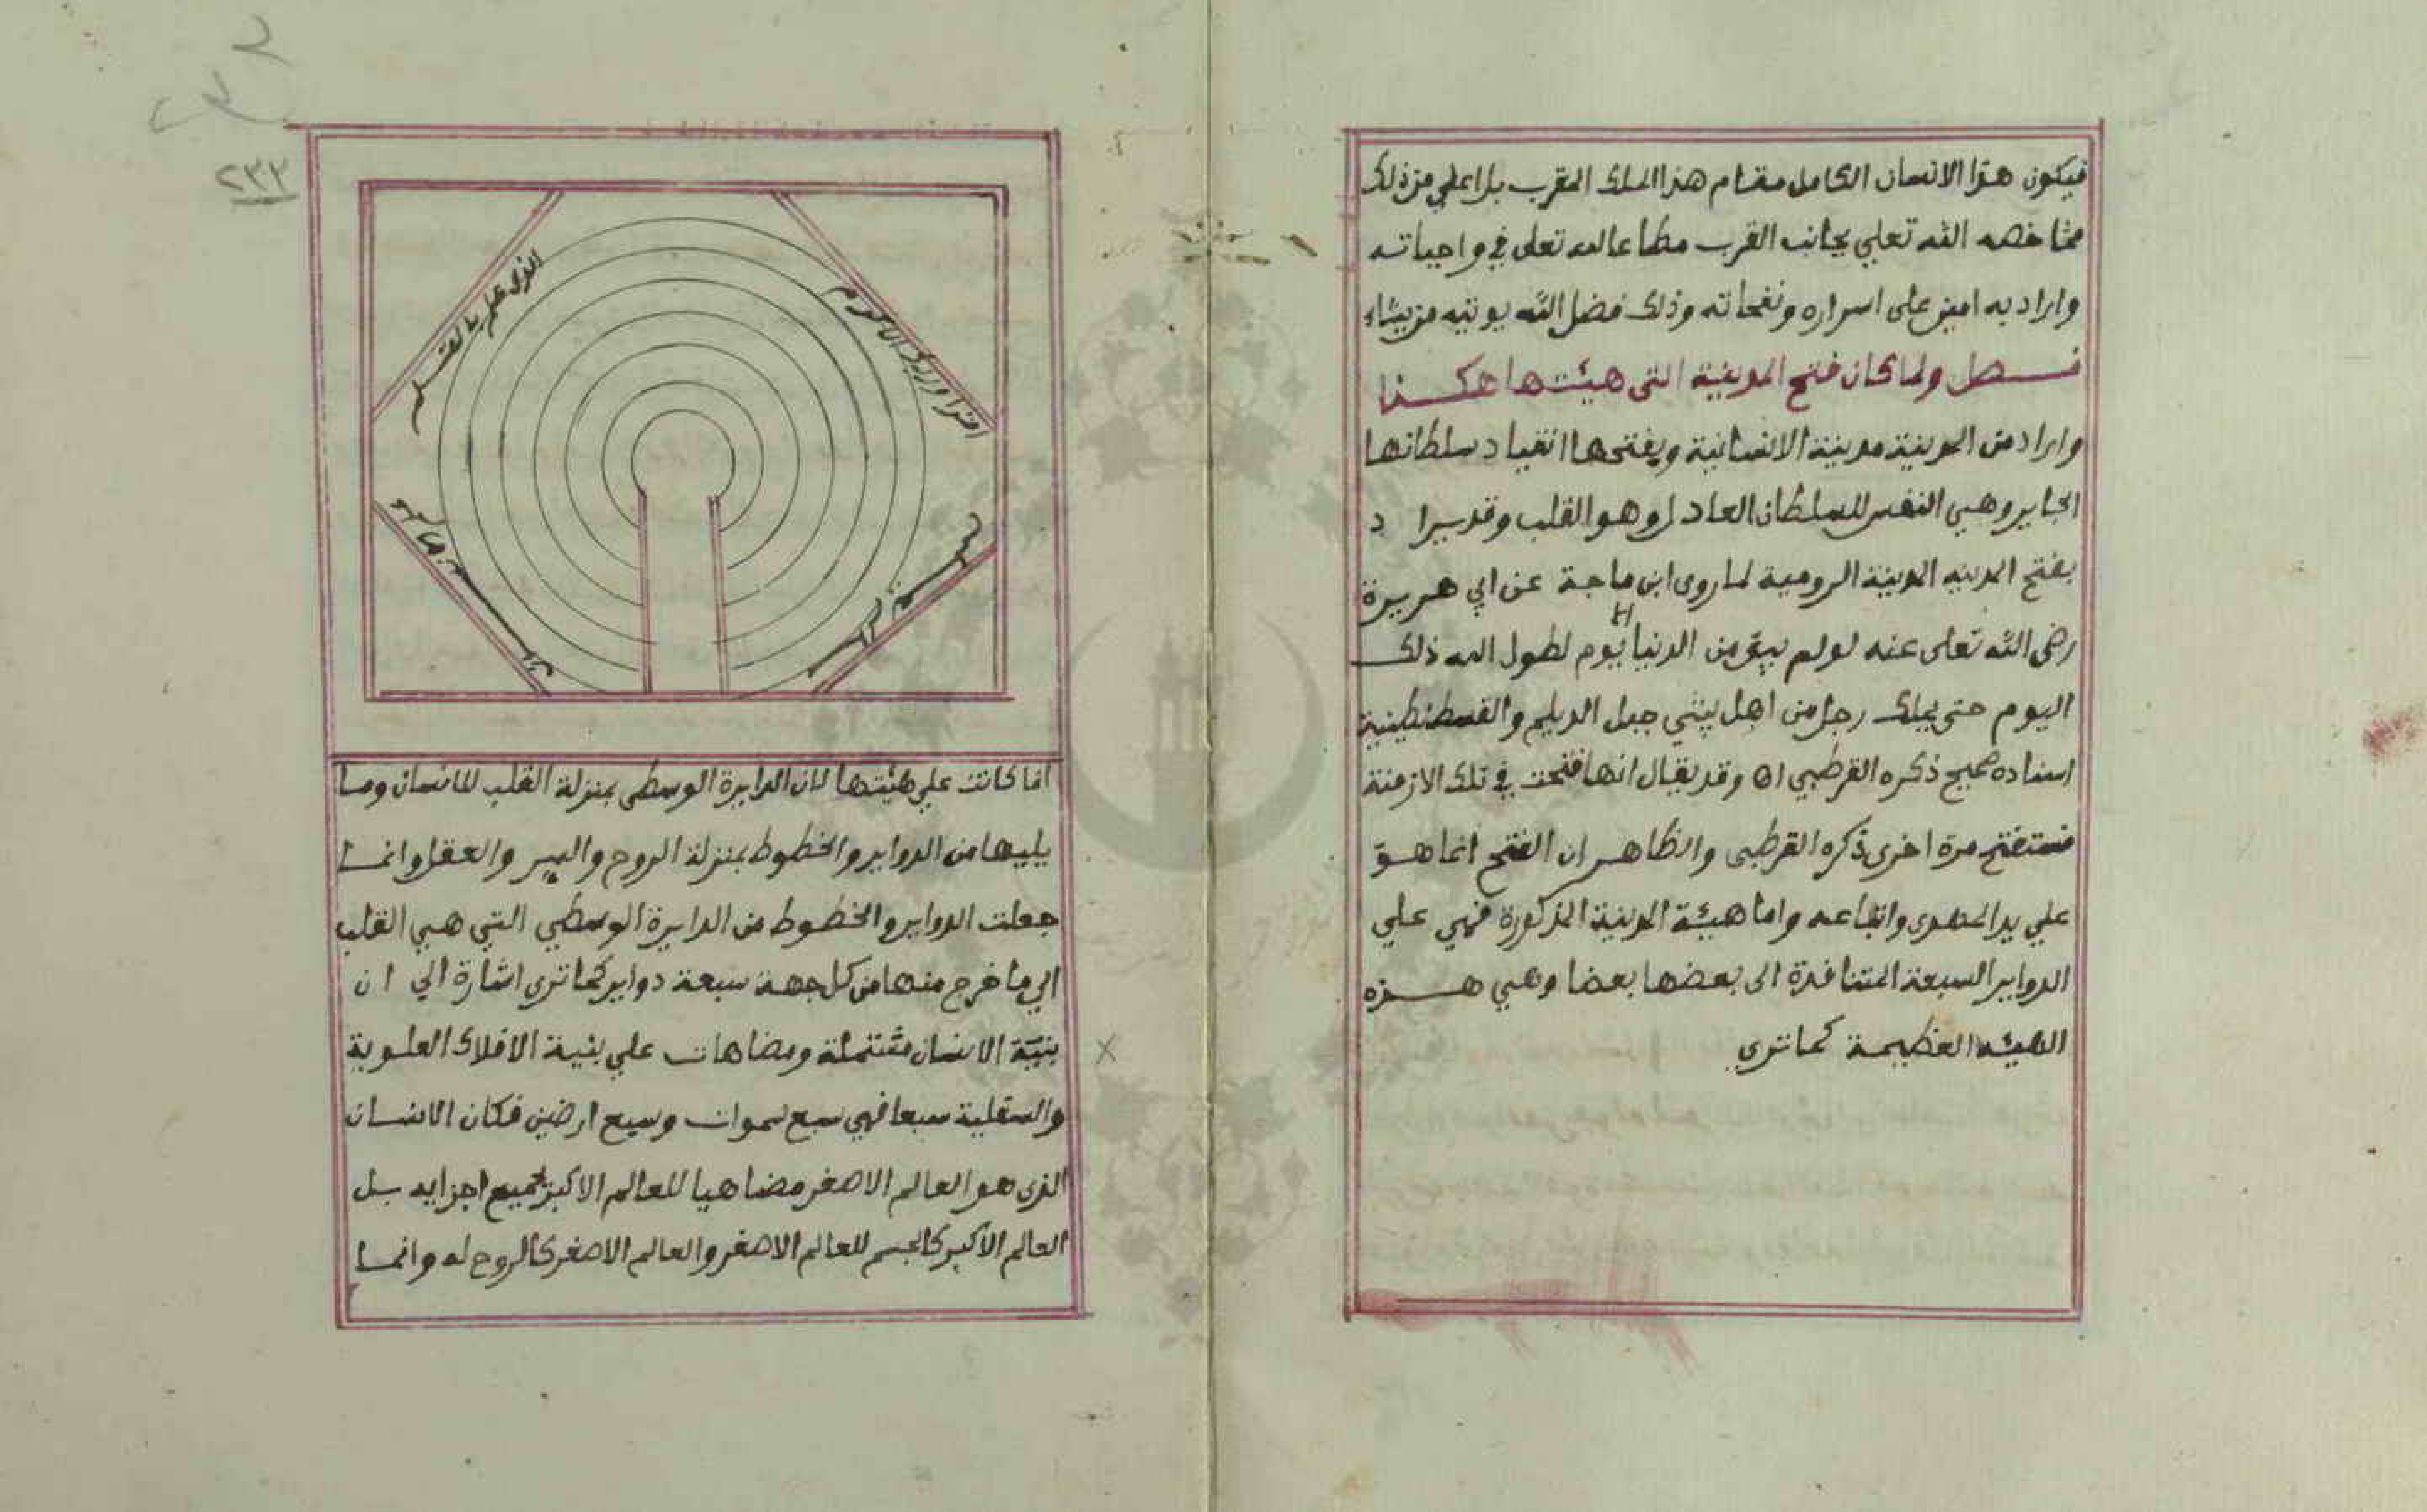 فيكون هذا الانسان الكامل مقام هذا الملك المقرب بل اعلي من ذلك
مما خصه الله تعلي بجانب القرب مطاعا لله تعلى في واجباته
واراد به امين على اسراره ونفحاته وذلك فضل الله يوتيه من يشاء
فصل ولما كان فتح المدينة التي هيئتها هكذا
واراد من المدينة مدينة الانسانية ويفتحها انقياد سلطانها
الجاير وهي النفس للسلطان العادل وهو القلب وقد يراد
بفتح المدينه المدينة الرومية لما روى ابن ماجة عن ابي هريرة
رضى الله تعلى عنه لو لم يبق من الدنيا الا يوم لطول الله ذلك
اليوم حتى يملك رجل من اهل بيتي جبل الديلم والقسطنطينية
اسناده صحيح ذكره القرطبي اه وقد يقال انها فتحت في تلك الازمنة
فستفتح مرة اخرى ذكره القرطبى والظاهر ان الفتح انما هو
علي يد المهدى واتباعه واما هيئة المدينة المذكورة فهي علي
الدواير السبعة المتنافذة الى بعضها بعضا وهي هذه
الهيئه العظيمة كما تري
٢٣٣
اقرا وربك الاكرم
الذى علم بالقلم
انما كانت علي هيئتها لان الدايرة الوسطى بمنزلة القلب للانسان وما
يليها من الدواير والخطوط بمنزلة الروح والسر والعقل وانما
جعلت الدواير والخطوط من الدايرة الوسطي التي هي القلب
الي ما خرج منها من كل جهة سبعة دواير كما ترى اشارة الي ان
بنية الانسان مشتملة ومضاهات علي بنية الافلاك العلوية
والسفلية سبعا فهي سبع سموات وسبع ارضين فكان الانسان
الذى هو العالم الاصغر مضاهيا للعالم الاكبر بجميع اجزايه بل
العالم الاكبر كالجسم للعالم الاصغر والعالم الاصغر كالروح له وانما